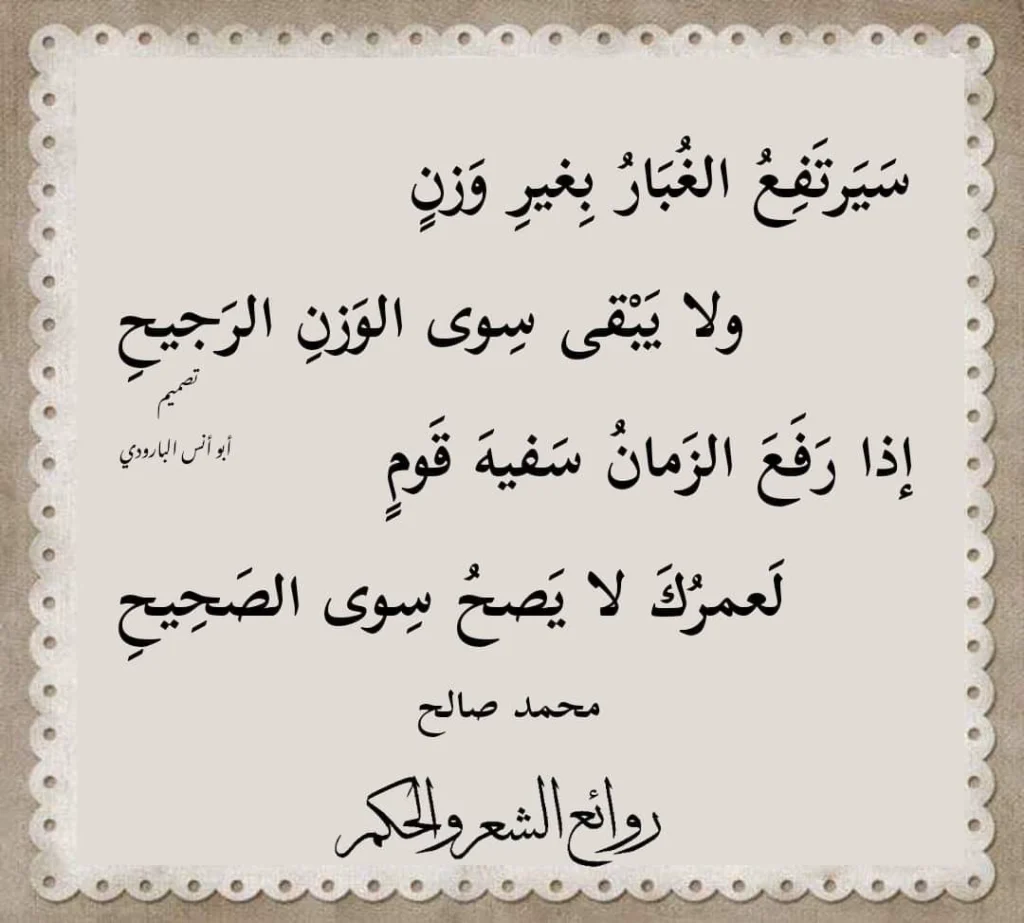 سَيَرتَفِعُ الغُبَارُ بِغيرِ وَزنٍ
ولا يَبْقى سِوى الوَزنِ الرَجيحِ
تصميم
أبو أنس البارودي
إذا رَفَعَ الزَمانُ سَفيهَ قَومٍ
لَعمرُكَ لا يَصحُ سِوى الصَحِيحِ
محمد صالح
روائع الشعر والحكم